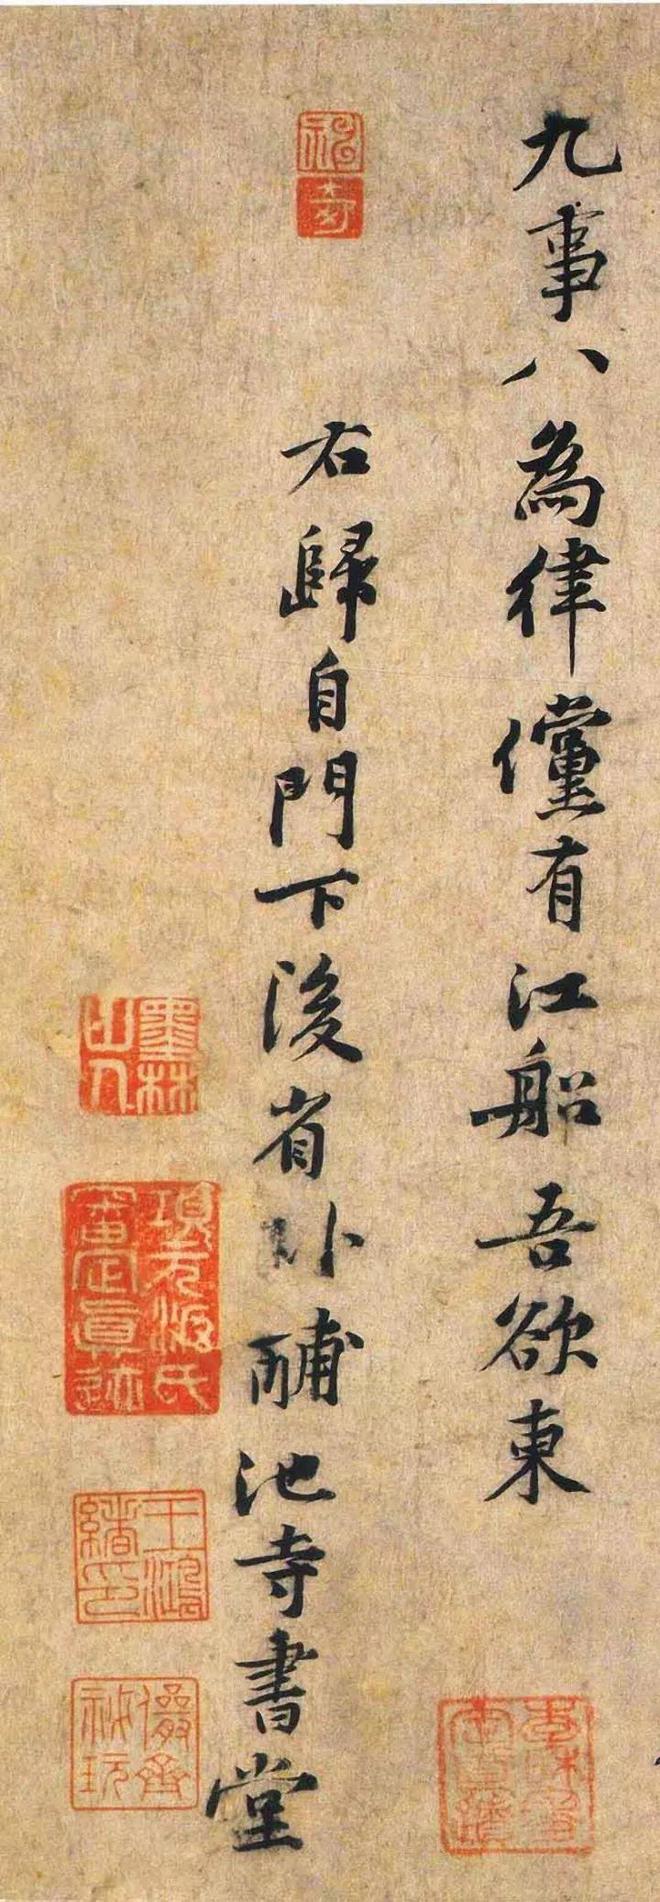 九事八為律儻有江船吾欲東
右歸自門下後省卧酺池寺書堂
神
奇
墨林
山人
項元汴氏
審定真跡
王鴻
緒印
儼齋
秘玩